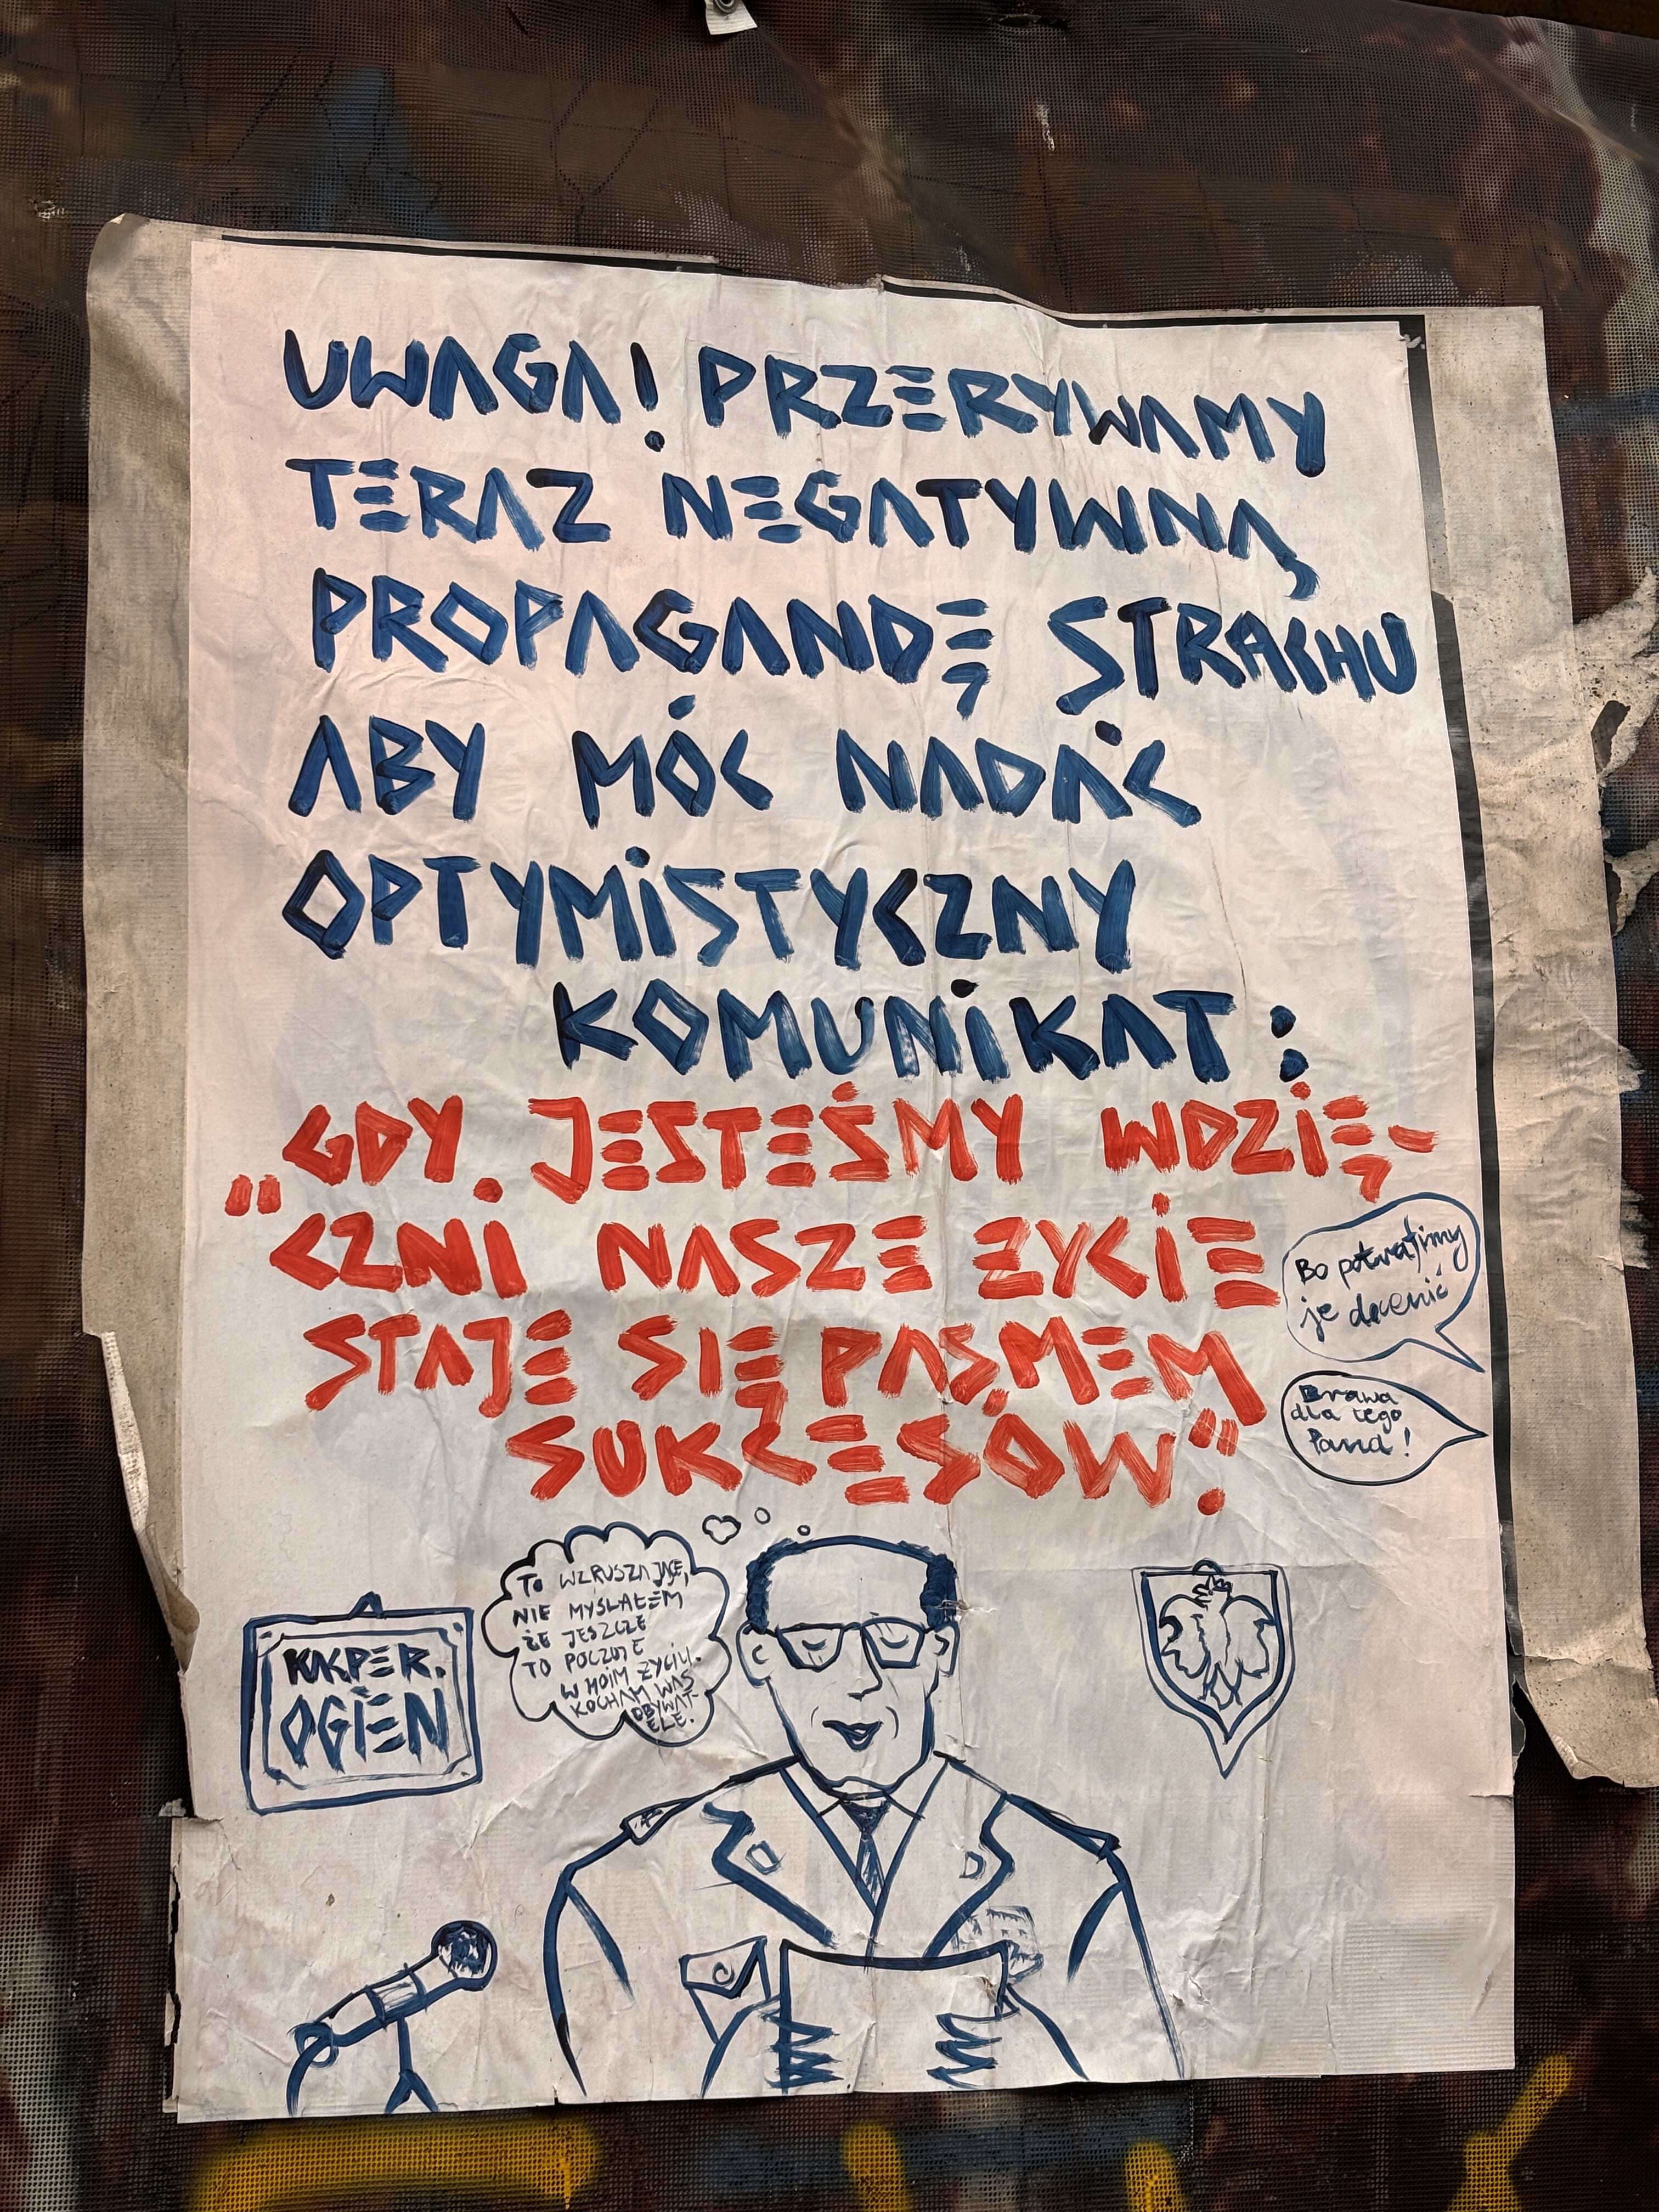 UWAGA! PRZERYWAMY
TERAZ NEGATYWNĄ
PROPAGANDĘ STRACHU
ABY MÓC NADAĆ
OPTYMISTYCZNY
KOMUNIKAT:
„GDY JESTEŚMY WDZIĘ-
CZNI NASZE ŻYCIE
STAJE SIĘ PASMEM
SUKCESÓW".
Bo potrafimy
je docenić
Brawa
dla tego
Pana!
TO WZRUSZAJĄCE,
NIE MYŚLAŁEM
ŻE JESZCZE
TO POCZUJĘ
W MOIM ŻYCIU.
KOCHAM WAS
OBYWAT-
ELE.
KACPER.
OGIEŃ